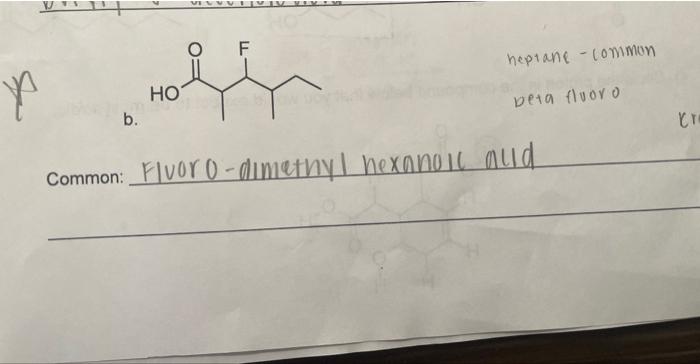 O F
HO
heptane - common
beta fluoro
b.
Common: Fluoro-dimethyl hexanoic acid